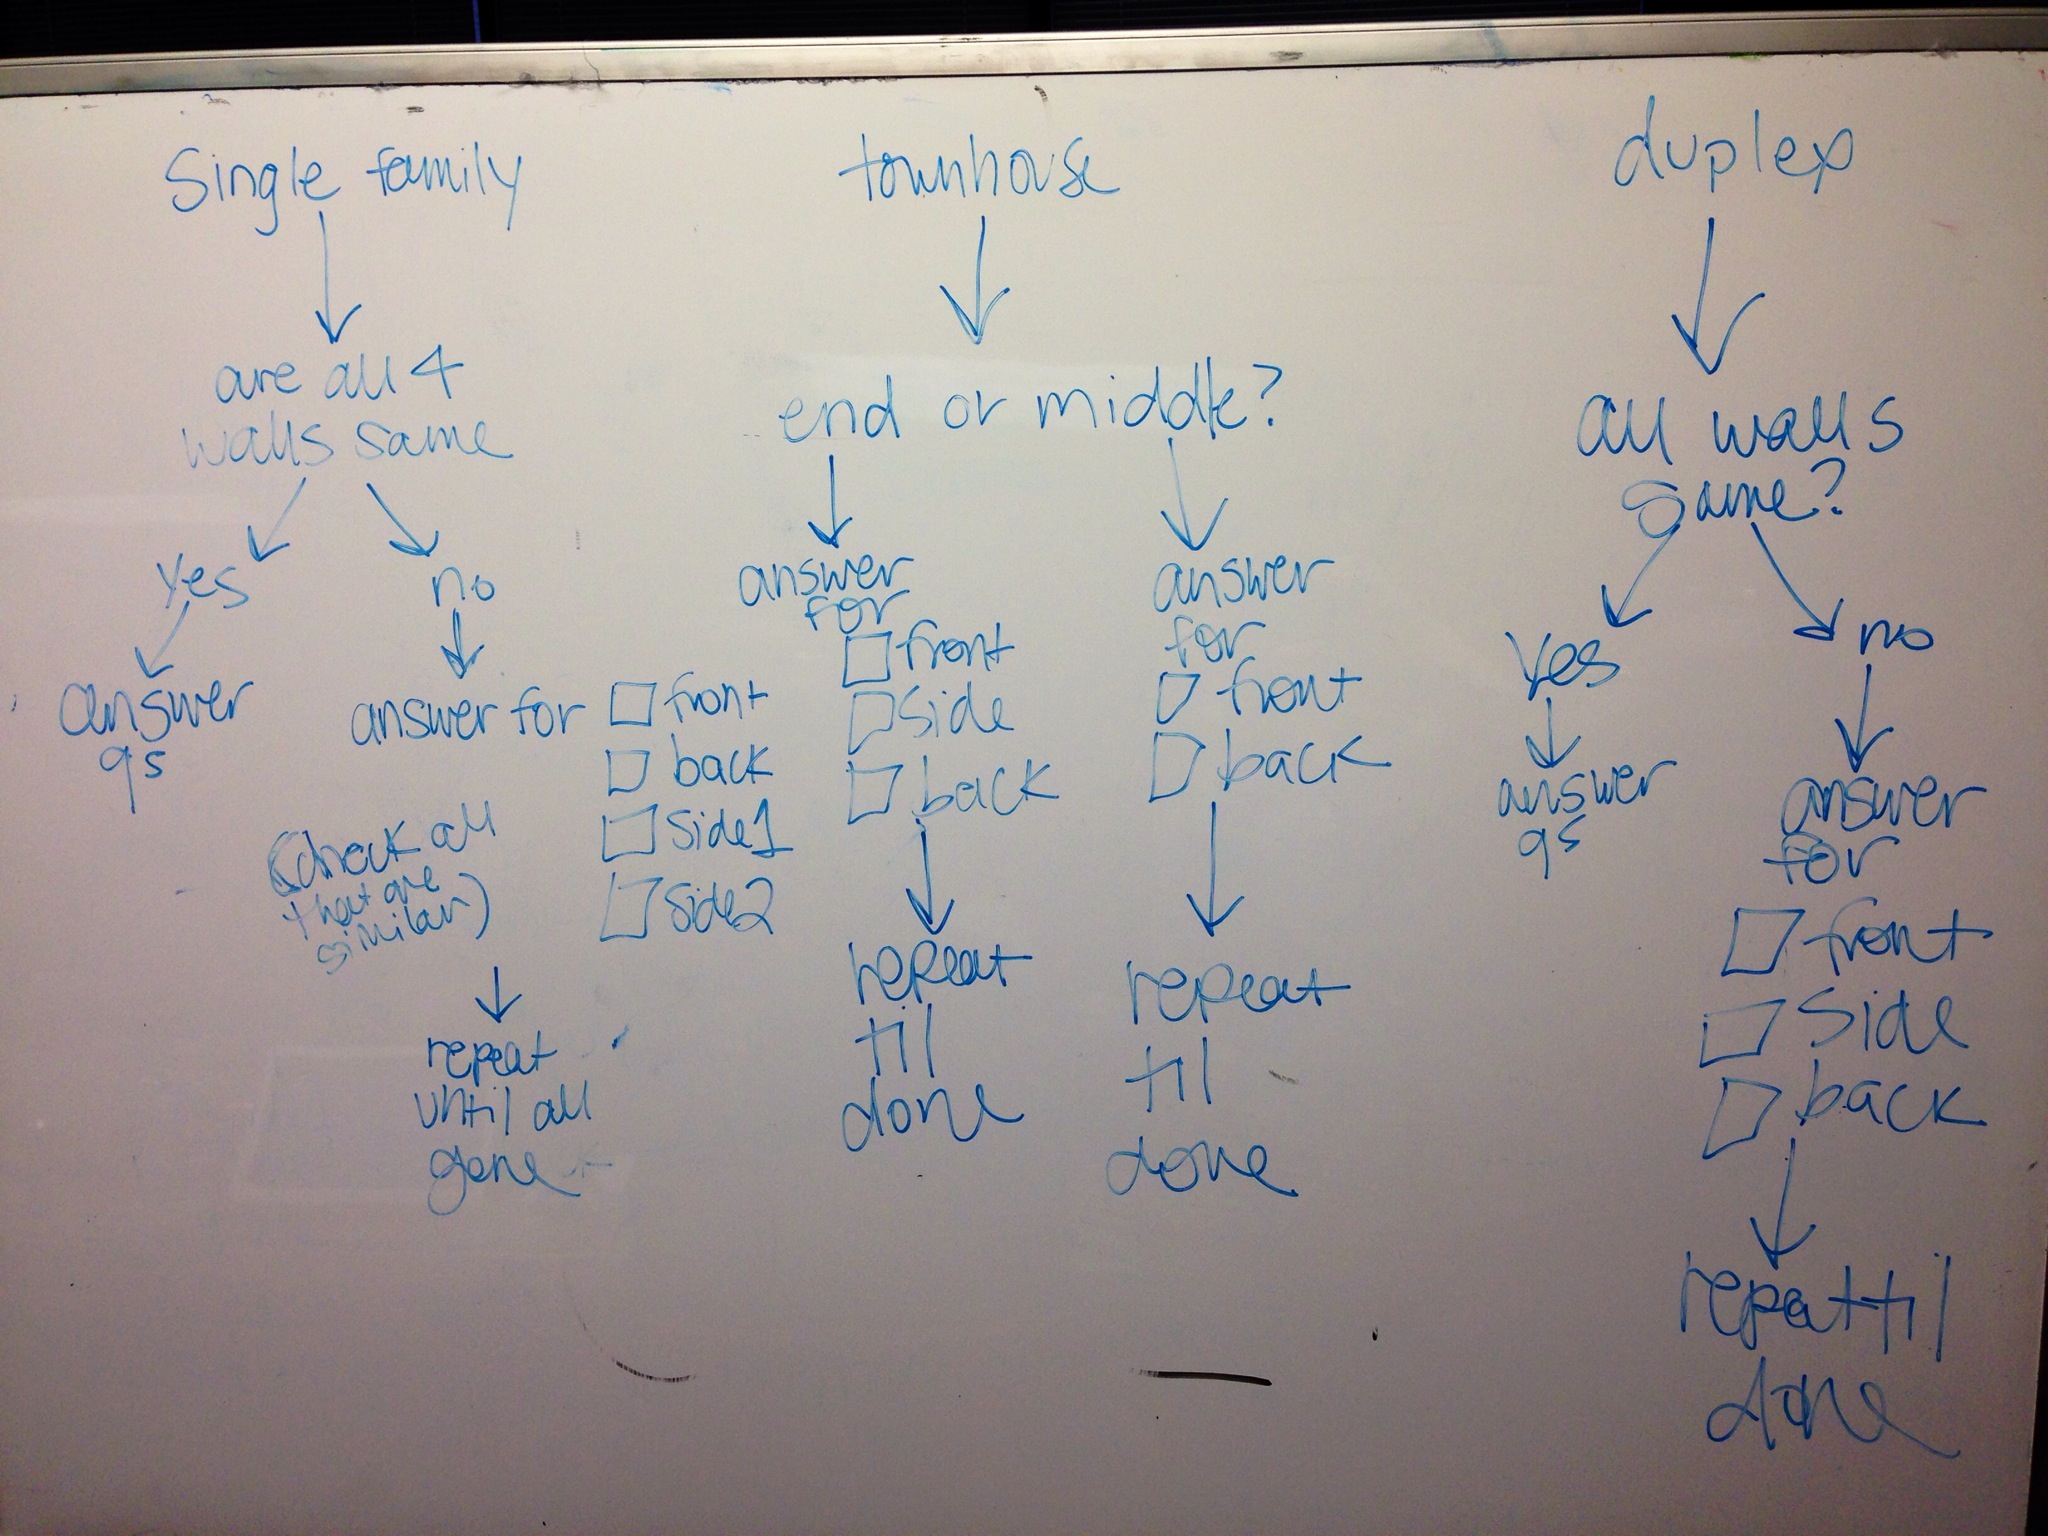 Single family
are all 4
walls same
yes
no
answer
qs
answer for
front
back
Side1
Side2
(check all
that are
similar)
repeat
until all
gone
townhouse
end or middle?
answer
for
front
side
back
repeat
til
done
answer
for
front
back
repeat
til
done
duplex
all walls
same?
yes
no
answer
qs
answer
for
front
Side
back
repeat til
done